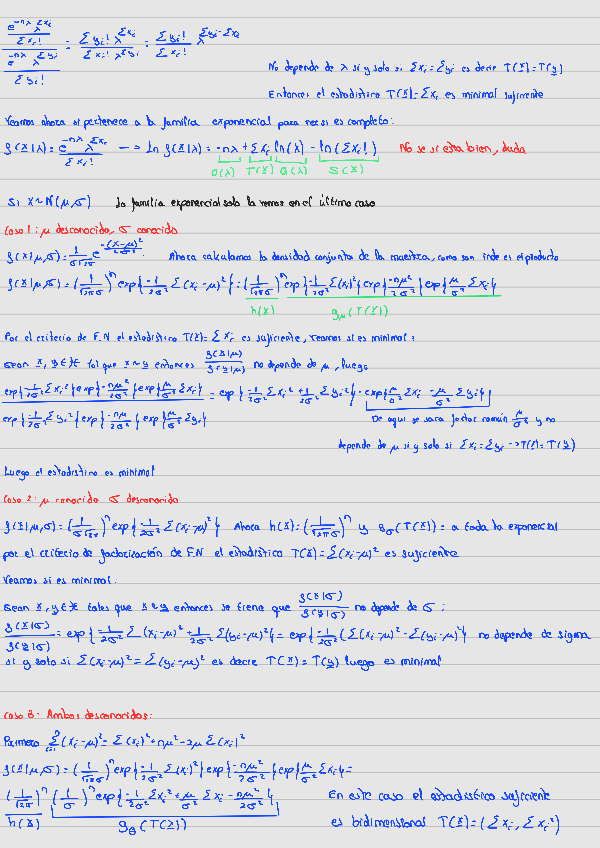 e^{-nλ} λ^{Σxi} / Σxi! / e^{-nλ} λ^{Σyi} / Σyi! = Σyi! λ^{Σxi} / Σxi! λ^{Σyi} = Σyi! / Σxi! λ^{Σyi-Σxi}
No depende de λ si y solo si Σxi = Σyi es decir T(X) = T(y)
Entonces el estadístico T(X) = Σxi es minimal suficiente
Veamos ahora si pertenece a la familia exponencial para ver si es completo:
f(X|λ) = e^{-nλ} λ^{Σxi} / Σxi! → ln f(X|λ) = -nλ + Σxi ln(λ) - ln(Σxi!) No se si esta bien, duda
D(λ) T(X) Q(λ) S(X)
Si X~N(μ,σ) La familia exponencial solo la vemos en el último caso
Caso 1: μ desconocido, σ conocido
f(X|μ,σ) = 1/σ√2π e^{-(x-μ)²/2σ²} Ahora calculamos la densidad conjunta de la muestra, como son inde es el producto
f(X|μ,σ) = (1/√2πσ)^n exp{-1/2σ² Σ(xi-μ)²} = (1/√2πσ)^n exp{-1/2σ² Σ(xi)²} exp{-nμ²/2σ²} exp{μ/σ² Σxi}
h(X) g_μ(T(X))
Por el criterio de F.N el estadístico T(X) = Σxi es suficiente, veamos si es minimal:
Sean x, y ∈ X tal que x~y entonces f(x|μ)/f(y|μ) no depende de μ, luego
exp{-1/2σ² Σxi²} exp{-nμ²/2σ²} exp{μ/σ² Σxi} / exp{-1/2σ² Σyi²} exp{-nμ/2σ²} exp{μ/σ² Σyi} = exp{-1/2σ² Σxi² + 1/2σ² Σyi²} · exp{μ/σ² Σxi - μ/σ² Σyi}
De aqui se saca factor común μ/σ² y no
depende de μ si y solo si Σxi = Σyi → T(x) = T(y)
Luego el estadístico es minimal
Caso 2: μ conocido σ desconocido
f(X|μ,σ) = (1/σ√2π)^n exp{-1/2σ² Σ(xi-μ)²} Ahora h(X) = (1/√2πσ)^n y g_σ(T(X)) = a toda la exponencial
por el criterio de factorización de F.N el estadístico T(X) = Σ(xi-μ)² es suficiente
Veamos si es minimal:
Sean x, y ∈ X tales que x~y entonces se tiene que f(x|σ)/f(y|σ) no depende de σ:
f(x|σ)/f(y|σ) = exp{-1/2σ² Σ(xi-μ)² + 1/2σ² Σ(yi-μ)²} = exp{-1/2σ² (Σ(xi-μ)² - Σ(yi-μ)²} no depende de sigma
si y solo si Σ(xi-μ)² = Σ(yi-μ)² es decir T(X) = T(y) luego es minimal
Caso 3: Ambos desconocidos:
Primero Σ(xi-μ)² = Σ(xi)² + nμ² - 2μ Σ(xi)²
f(X|μ,σ) = (1/√2πσ)^n exp{-1/2σ² Σ(xi)²} exp{-nμ²/2σ²} exp{μ/σ² Σxi} =
(1/√2π)^n (1/σ)^n exp{-1/2σ² Σxi² + μ/σ² Σxi - nμ²/2σ²} En este caso el estadístico suficiente
h(X) g_θ(T(X)) es bidimensional T(X) = (Σxi, Σxi²)